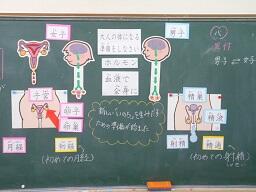 女子
大人の体になる
準備をしなさい
男子
ホルモン
血液で
全身に
異性
男子 女子
子宮
卵子
卵巣
月経
初経
(初めての月経)
新しい「いのち」を生み出す
ための準備が始まった
精巣
精液
射精
精通
(初めての射精)